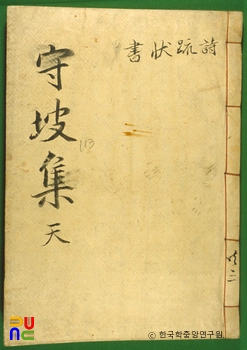 詩疏狀書
守坡集
天
113
共三
© 한국학중앙연구원